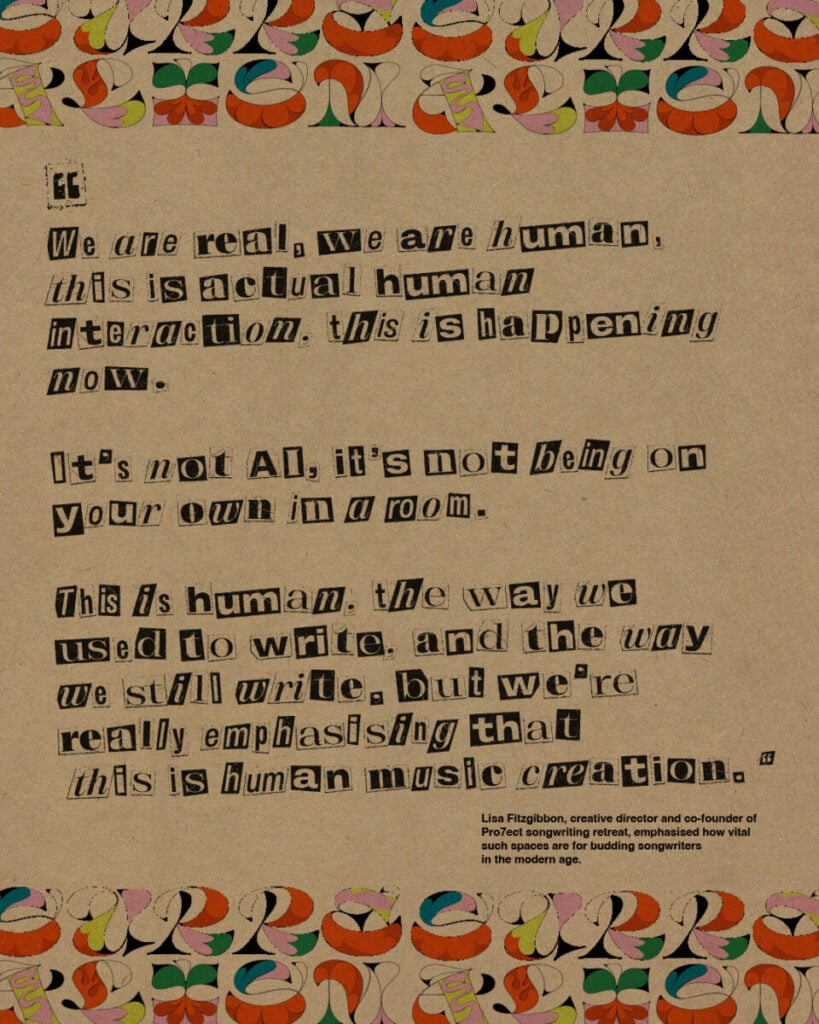 “
We are real, we are human,
this is actual human
interaction. this is happening
now.
It's not AI, it's not being on
your own in a room.
This is human. the way we
used to write. and the way
we still write. but we're
really emphasising that
this is human music creation. “
Lisa Fitzgibbon, creative director and co-founder of
Pro7ect songwriting retreat, emphasised how vital
such spaces are for budding songwriters
in the modern age.